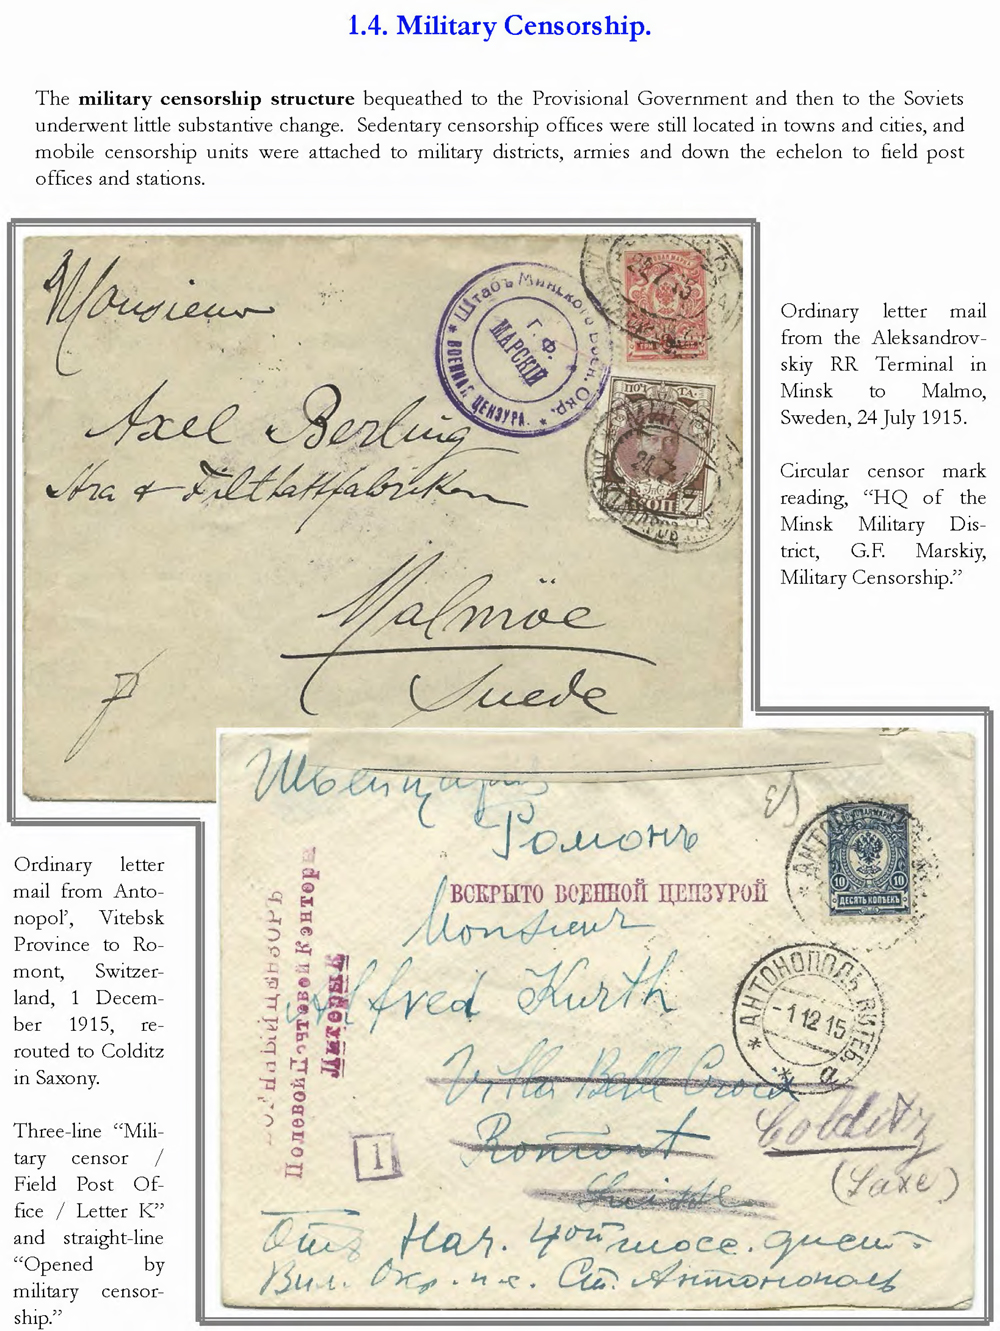 1.4. Military Censorship.
The military censorship structure bequeathed to the Provisional Government and then to the Soviets
underwent little substantive change. Sedentary censorship offices were still located in towns and cities, and
mobile censorship units were attached to military districts, armies and down the echelon to field post
offices and stations.
Monsieur
Axel Berling
Malmöe
Suede
Штабъ Минского Воен. Окр.
* ВОЕННАЯ ЦЕНЗУРА. *
Г. Ф.
МАРСКІЙ
ПОЧТА
7 КОП 7
Ordinary letter mail
from the Aleksandrov-
skiy RR Terminal in
Minsk to Malmo,
Sweden, 24 July 1915.
Circular censor mark
reading, “HQ of the
Minsk Military Dis-
trict, G.F. Marskiy,
Military Censorship.”
Ordinary letter
mail from Anto-
nopol’, Vitebsk
Province to Ro-
mont, Switzer-
land, 1 Decem-
ber 1915, re-
routed to Colditz
in Saxony.
Three-line “Mili-
tary censor /
Field Post Of-
fice / Letter K”
and straight-line
“Opened by
military censor-
ship.”
Швейцарія
Ромонъ
ВСКРЫТО ВОЕННОЙ ЦЕНЗУРОЙ
Monsieur
Alfred Kurth
Villa Bell Croix
Romont
Suisse
Colditz
(Saxe)
Полевой Почтовой Конторы
Литеры К
1
10 10
ДЕСЯТЬ КОПѢЕКЪ
* АНТОНОПОЛЬ ВИТЕБ. *
-1 12 15
а
Отъ Нач. 4ой шосс. дист.
Вил. Окр. п.с. Ст. Антонополь